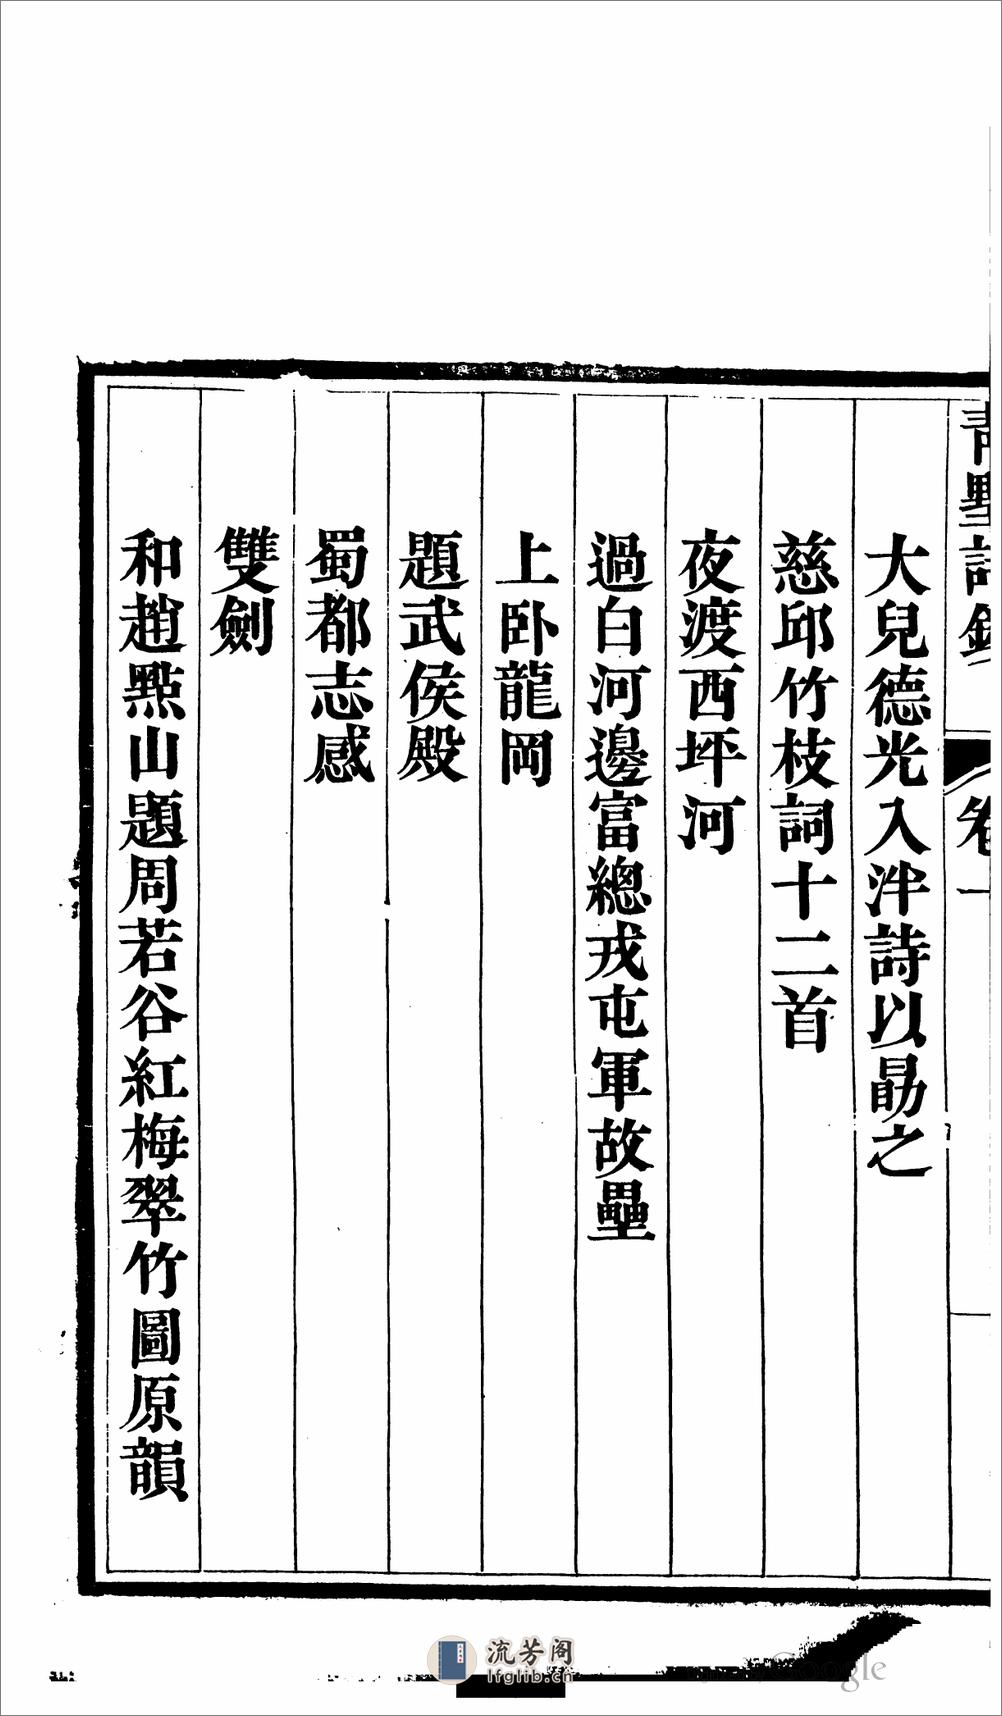 青墅詩鈔 卷一
大兒德光入泮詩以勗之
慈邱竹枝詞十二首
夜渡西坪河
過白河邊富總戎屯軍故壘
上卧龍岡
題武侯殿
蜀都志感
雙劍
和趙點山題周若谷紅梅翠竹圖原韻
流芳阁
lfglib.cn
Google